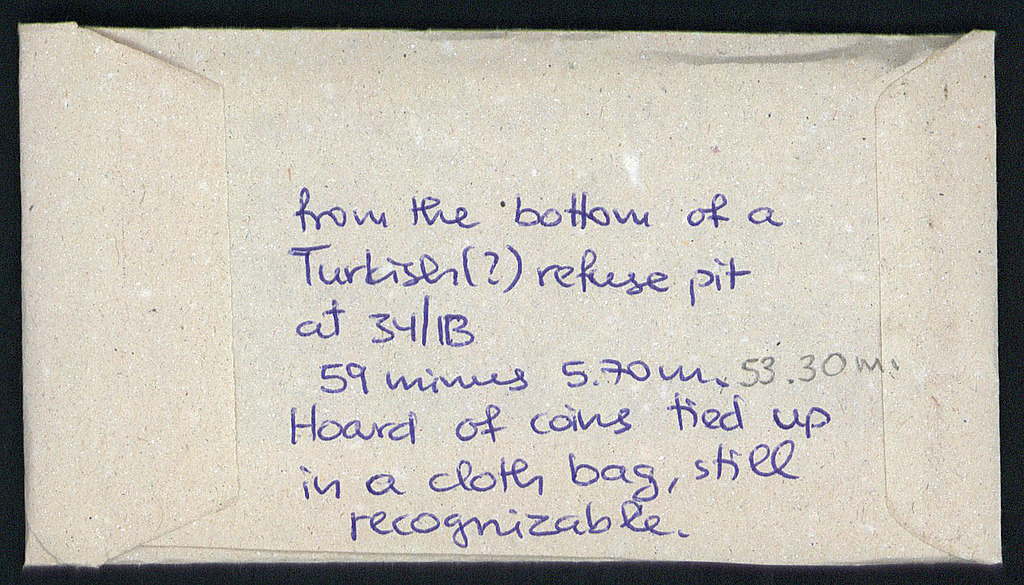 from the bottom of a
Turkish(?) refuse pit
at 34/IB
59 minus 5.70m. 53.30m.
Hoard of coins tied up
in a cloth bag, still
recognizable.